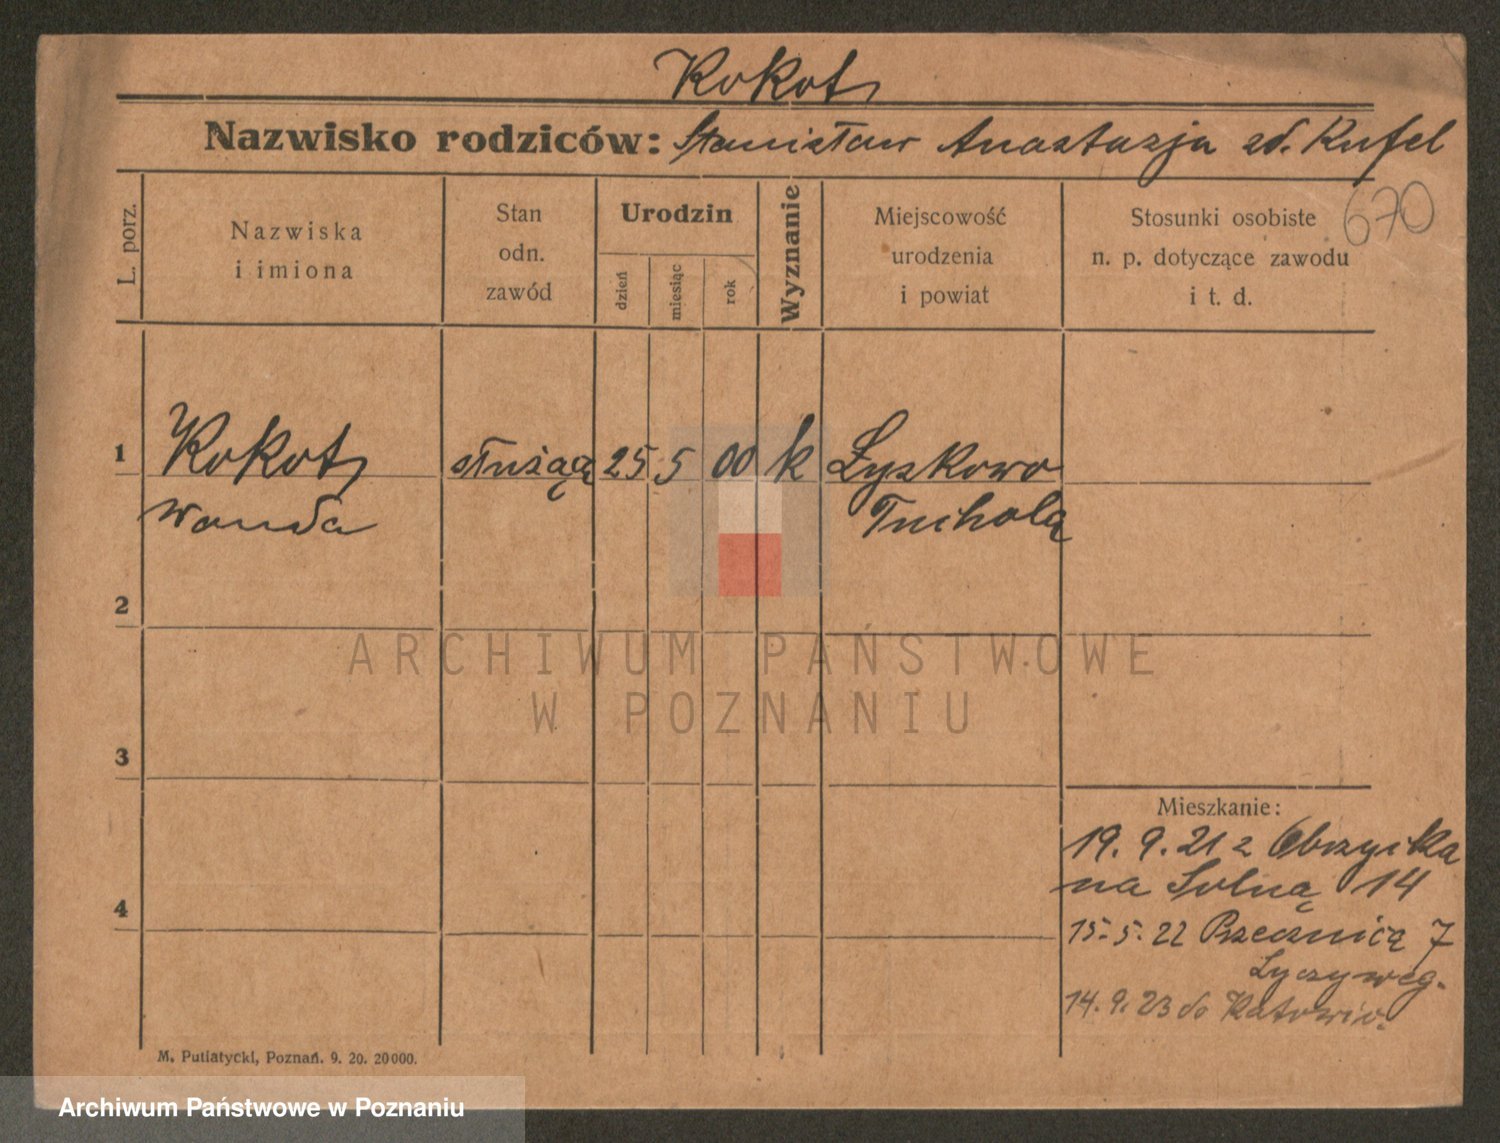 Kokot
Nazwisko rodziców: Stanisław Anastazja zd. Kufel
670
L. porz.
Nazwiska
i imiona
Stan
odn.
zawód
Urodzin
dzień
miesiąc
rok
Wyznanie
Miejscowość
urodzenia
i powiat
Stosunki osobiste
n. p. dotyczące zawodu
i t. d.
1 Kokot służącą 25 5 00 k Łyskowo
Wanda Tucholą
2
ARCHIWUM PAŃSTWOWE
W POZNANIU
3
Mieszkanie:
19. 9. 21 z Obrzycka
na Solną 14
4
15. 5. 22 Rzecznicą 7
14. 9. 23 do Katowic.
M. Putiatycki, Poznań. 9. 20. 20000.
Archiwum Państwowe w Poznaniu